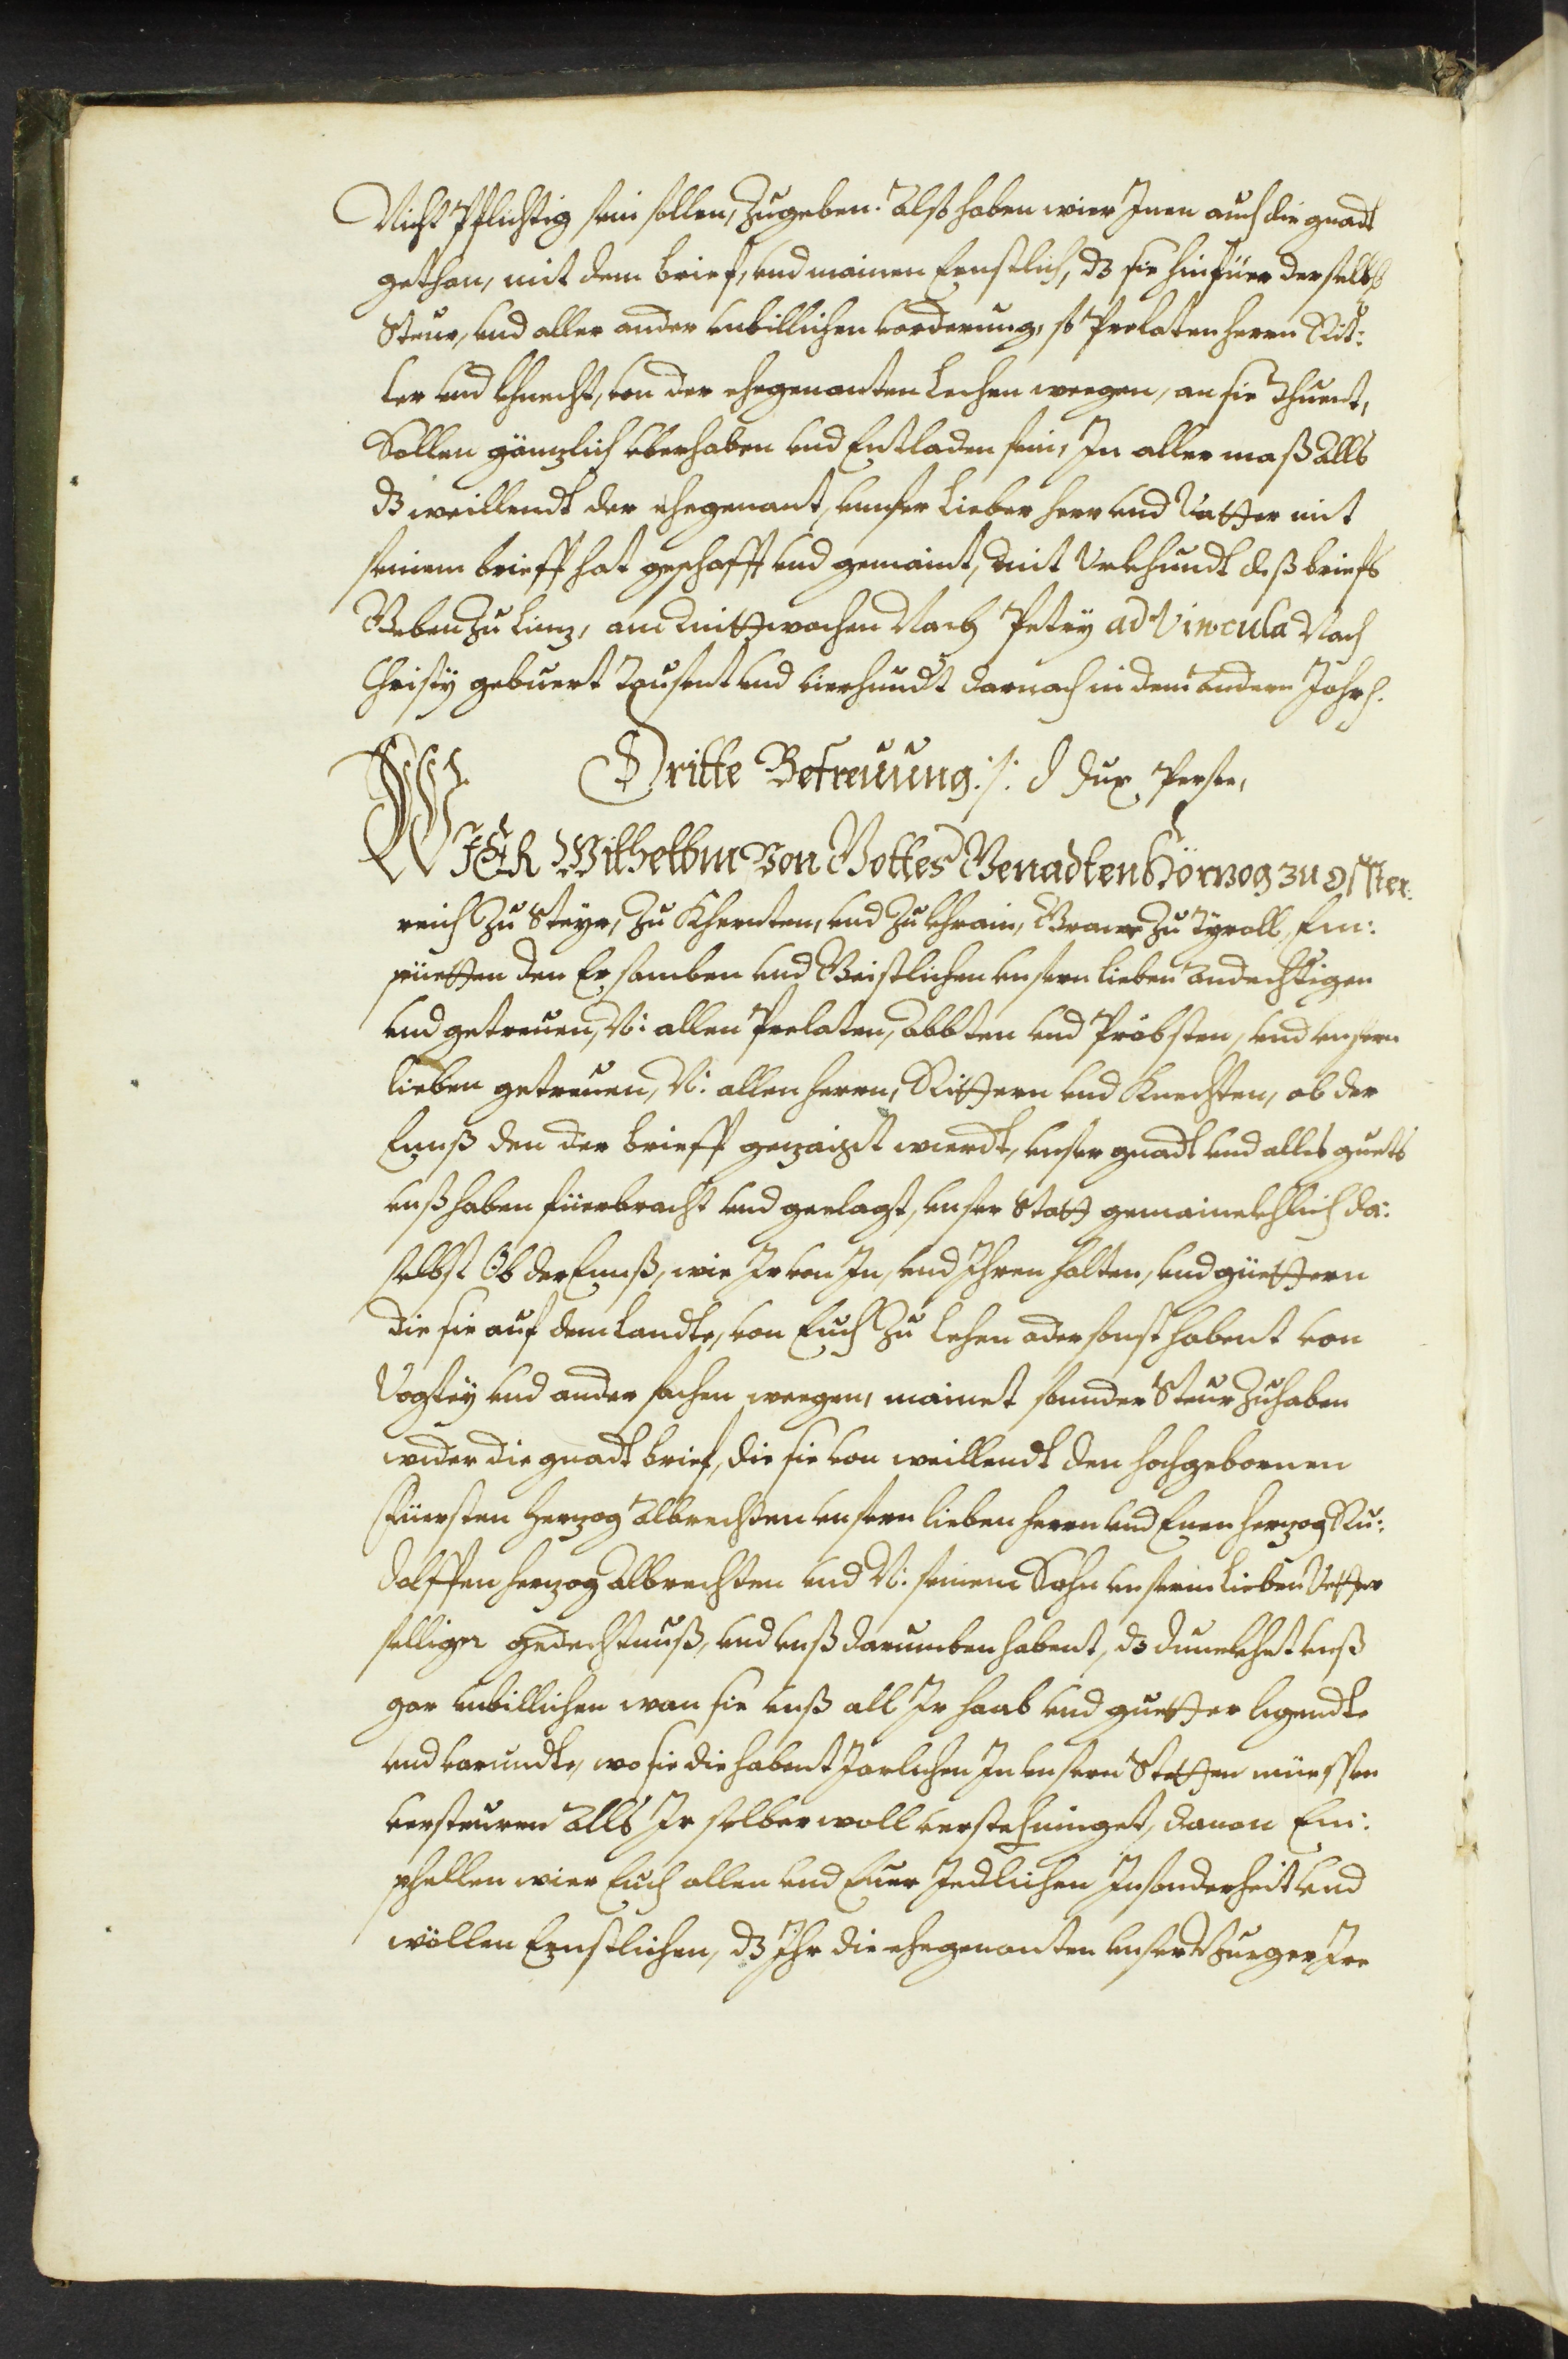 Nicht Pflichtig sein sollen, zugeben. Alß haben wier Inen auch die gnadt
gethan, mit dem brief, vnd mainen Ernstlich, dz sie hinfüer derselbs
Steur, vnd aller ander vnbillichen vorderung, so Prelaten herrn Rit:
ter vnd Khnecht, von der ehegenanten Lechen weegen, an sie Thuent,
Sollen gänzlich vberhaben vnd Entladen sein, In aller maß Alls
dz weillendt der ehegenant, vnnser Lieber herr vnd Vatter mit
seinem brieff hat geschafft vnd gemaint, mit Vrkhundt deß briefs
Geben zu Linz, am Mittwochen Nach Petry ad Vincula Nach
Christy gebuert Tausent vnd vierhundt darnach in dem Andern Jahrs.
Dritte Befreiung ./. Dux Perse,
WIER Wilhelbm Von Gottes Genadten Hörzog zu Össter:
reich zu Steyr, zu Khernten, vnd zu Chrain, Graue zu Tyroll, Em:
püetten den Ersamben vnd Geistlichen vnsern lieben Andechtigen
vnd getreuen, N: allen Prelaten, Abbten vnd Probsten, vnd vnsern
lieben getreuen, N: allen herrn, Rittern vnd Knechten, ob der
Ennß den der brieff gezaigt wierdt, vnser gnadt vnd alles guets
vnß haben füerbracht vnd geclagt, vnser Stätt gemainckhlich da:
selbst Ob der Ennß, wie Ir von In, vnd Ihren holten, vnd güettern
die sie auf dem Landte, von Euch zu Lehen oder sonst habent von
Vogtey vnd ander sachen weegen, mainet sonder Steur zuhaben
wider die gnadt brief, die sie von weillendt den hochgebornen
Füersten herzog Albrechten vnsern lieben herrn vnd Enen herzog Ru:
dolffen herzog Albrechten vnd N: seinem Sohn vnserm lieben Vetter
selliger gedechtnuß, vnd vnß darumben habent, dz dunckhet vnß
gar vnbillichen wan sie vnß all Ir haab vnd guetter ligendte
vnd varundte, wo sie die habent Jarlichen In vnsern Stetten müessen
versteuren Alls Ir selber woll versteh minget, dauon Em:
phellen wier Euch allen vnd Euer Jedlichen Insonderheit vnd
wöllen Ernstlichen, dz Ihr die ehegenanten vnser Burger Ire